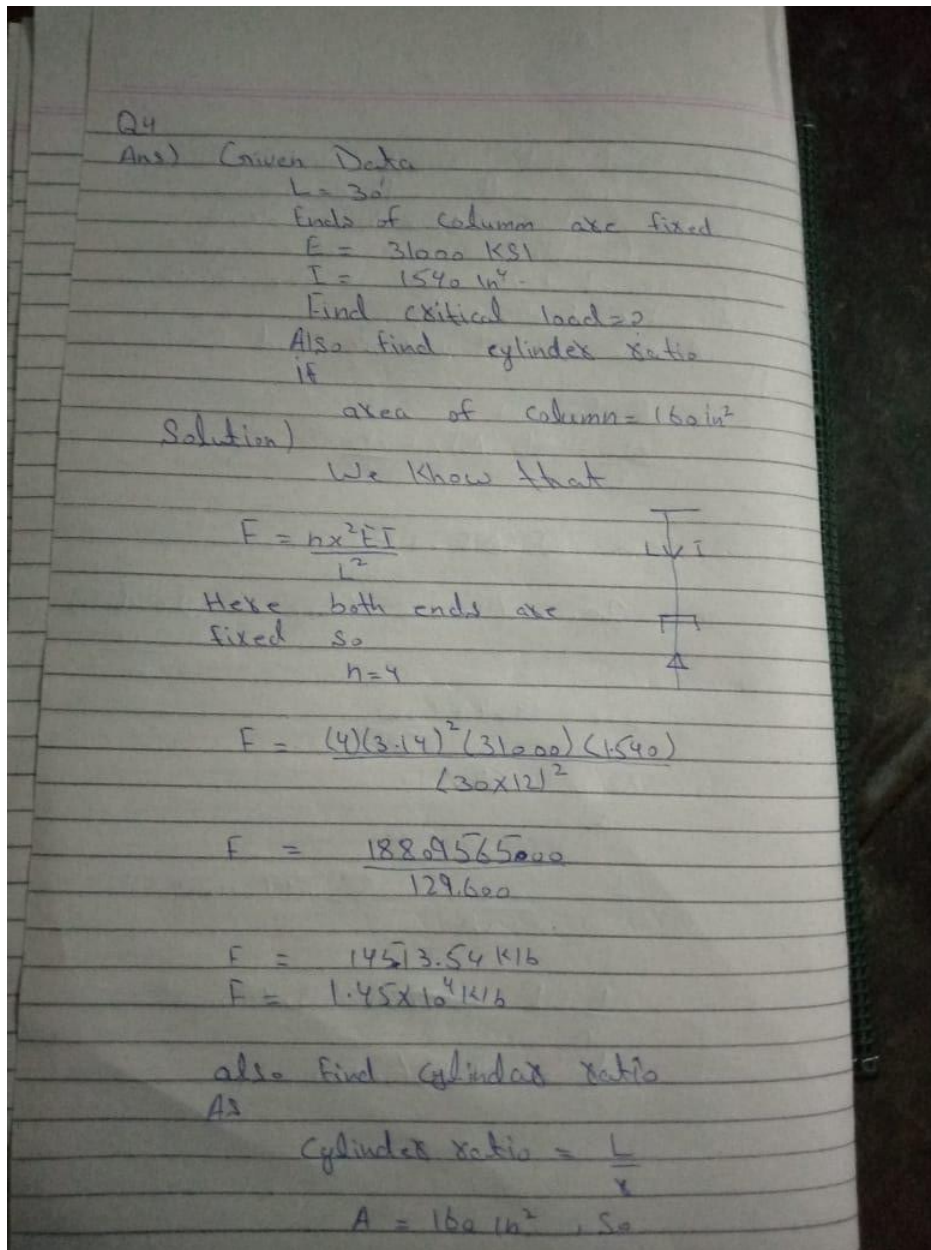 Q4
Ans) Given Data
L = 30'
Ends of column are fixed
E = 31000 KSI
I = 1540 in⁴.
Find critical load=?
Also find cylinder ratio
if
area of column = 160 in²
Solution)
We Know that
F = nπ²EI
L²
L I
Here both ends are
fixed so
n=4
F = (4)(3.14)²(31000)(1540)
(30×12)²
F = 18809565000
129.600
F = 14513.54 Klb
F = 1.45×10⁴ Klb
also find cylindar ratio
As
Cylinder ratio = L
r
A = 160 in², So